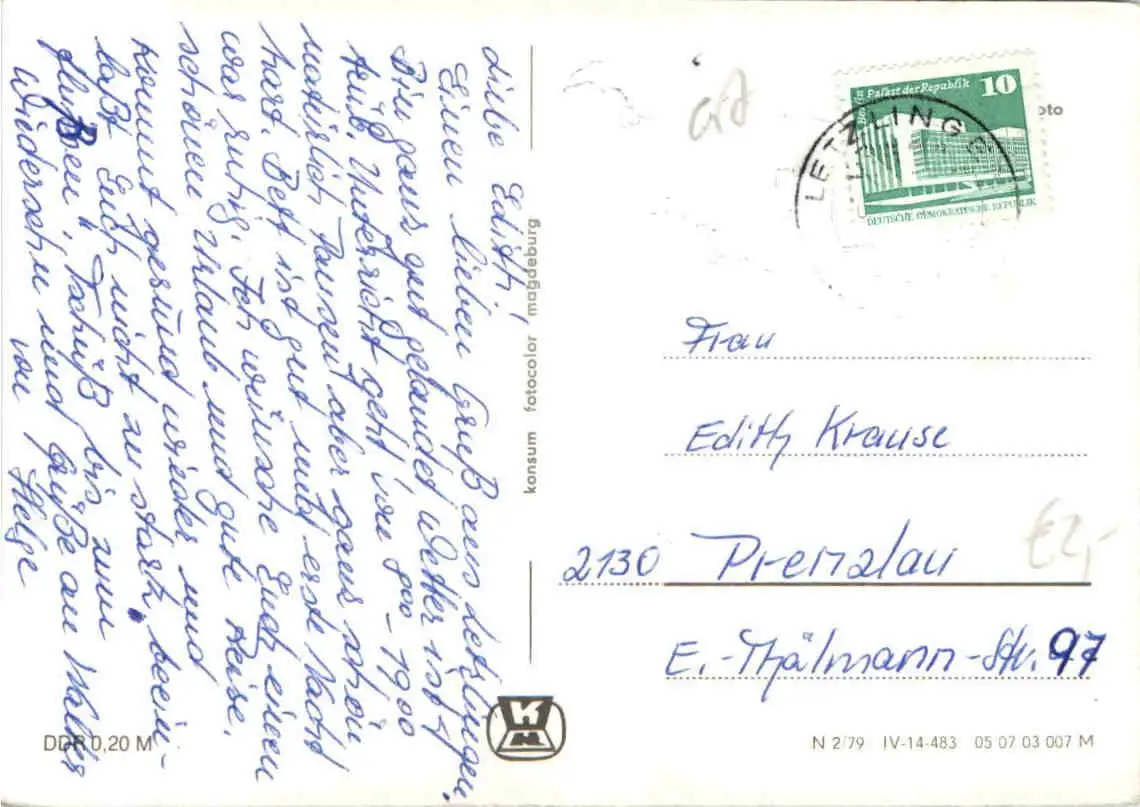 Liebe Edith,
Einen lieben Gruß aus Letzlingen.
Bin ganz gut gelandet Wetter ist
trüb. Unterricht geht von 8⁰⁰ - 19⁰⁰
natürlich Pausen aber ganz schön
hart. Bett ist gut und erste Nacht
war ruhig. Ich wünsche Euch einen
schönen Urlaub und gute Reise.
Kommt gesund wieder und
laßt Euch nicht zu stark beein-
flußen". Tschüß bis zum
Wiedersehn und Grüße an Walter
von Helge
konsum fotocolor magdeburg
DDR 0,20 M
Berlin Palast der Republik 10
DEUTSCHE DEMOKRATISCHE REPUBLIK
LETZLINGE
oto
Frau
Edith Krause
2130 Prenzlau
E.-Thälmann-Str. 97
€2,-
K
M
N 2/79 IV-14-483 05 07 03 007 M